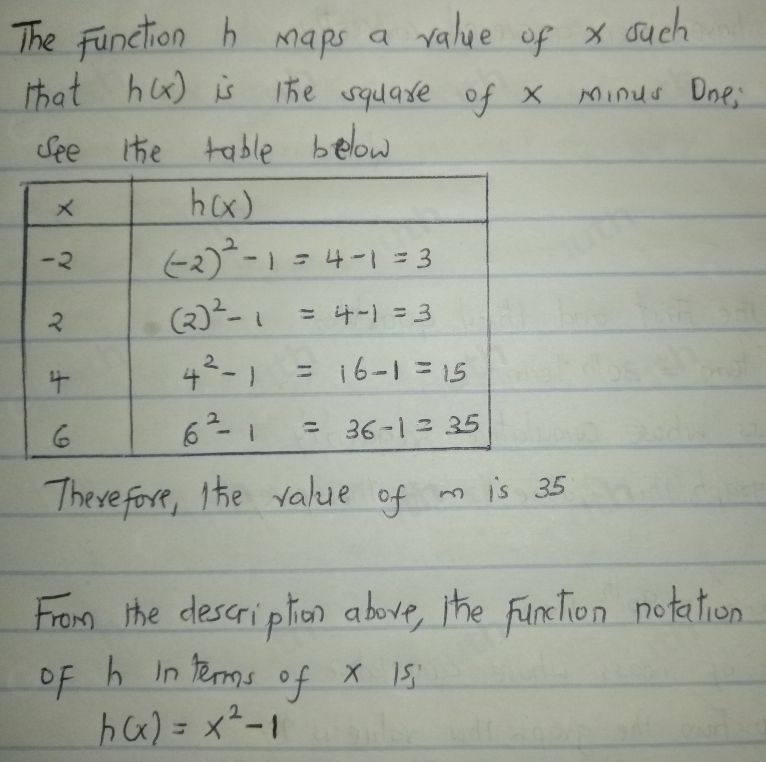 The Function h maps a value of x such
that h(x) is the square of x minus One;
See the table below
x h(x)
-2 (-2)² - 1 = 4 - 1 = 3
2 (2)² - 1 = 4 - 1 = 3
4 4² - 1 = 16 - 1 = 15
6 6² - 1 = 36 - 1 = 35
Therefore, the value of m is 35
From the description above, the function notation
of h in terms of x is;
h(x) = x² - 1